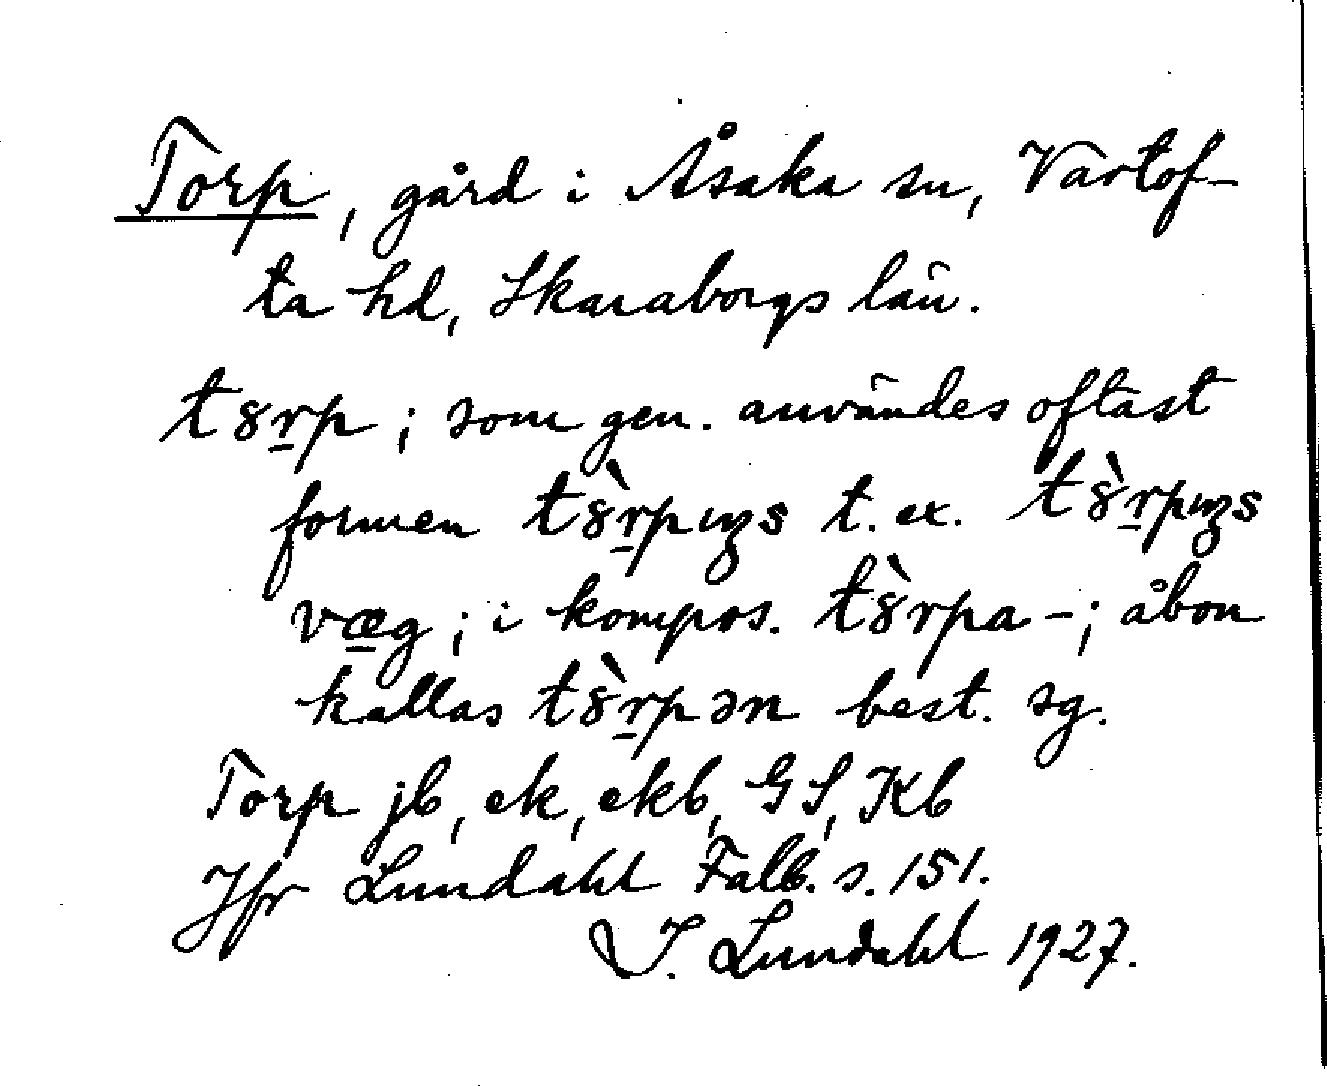 Torp, gård i Åsaka sn, Vartof-
ta hd, Skaraborgs län.
t8r̲p; som gen. användes oftast
formen t8̀r̲pıŋs t. ex. t8̀r̲pıŋs
væ̲g; i kompos. t8̀rpa-; åbon
kallas t8̀r̲pən best. sg.
Torp jb, ek, ekb, GS, Kb
Jfr Lundahl Falb. s. 151.
I. Lundahl 1927.